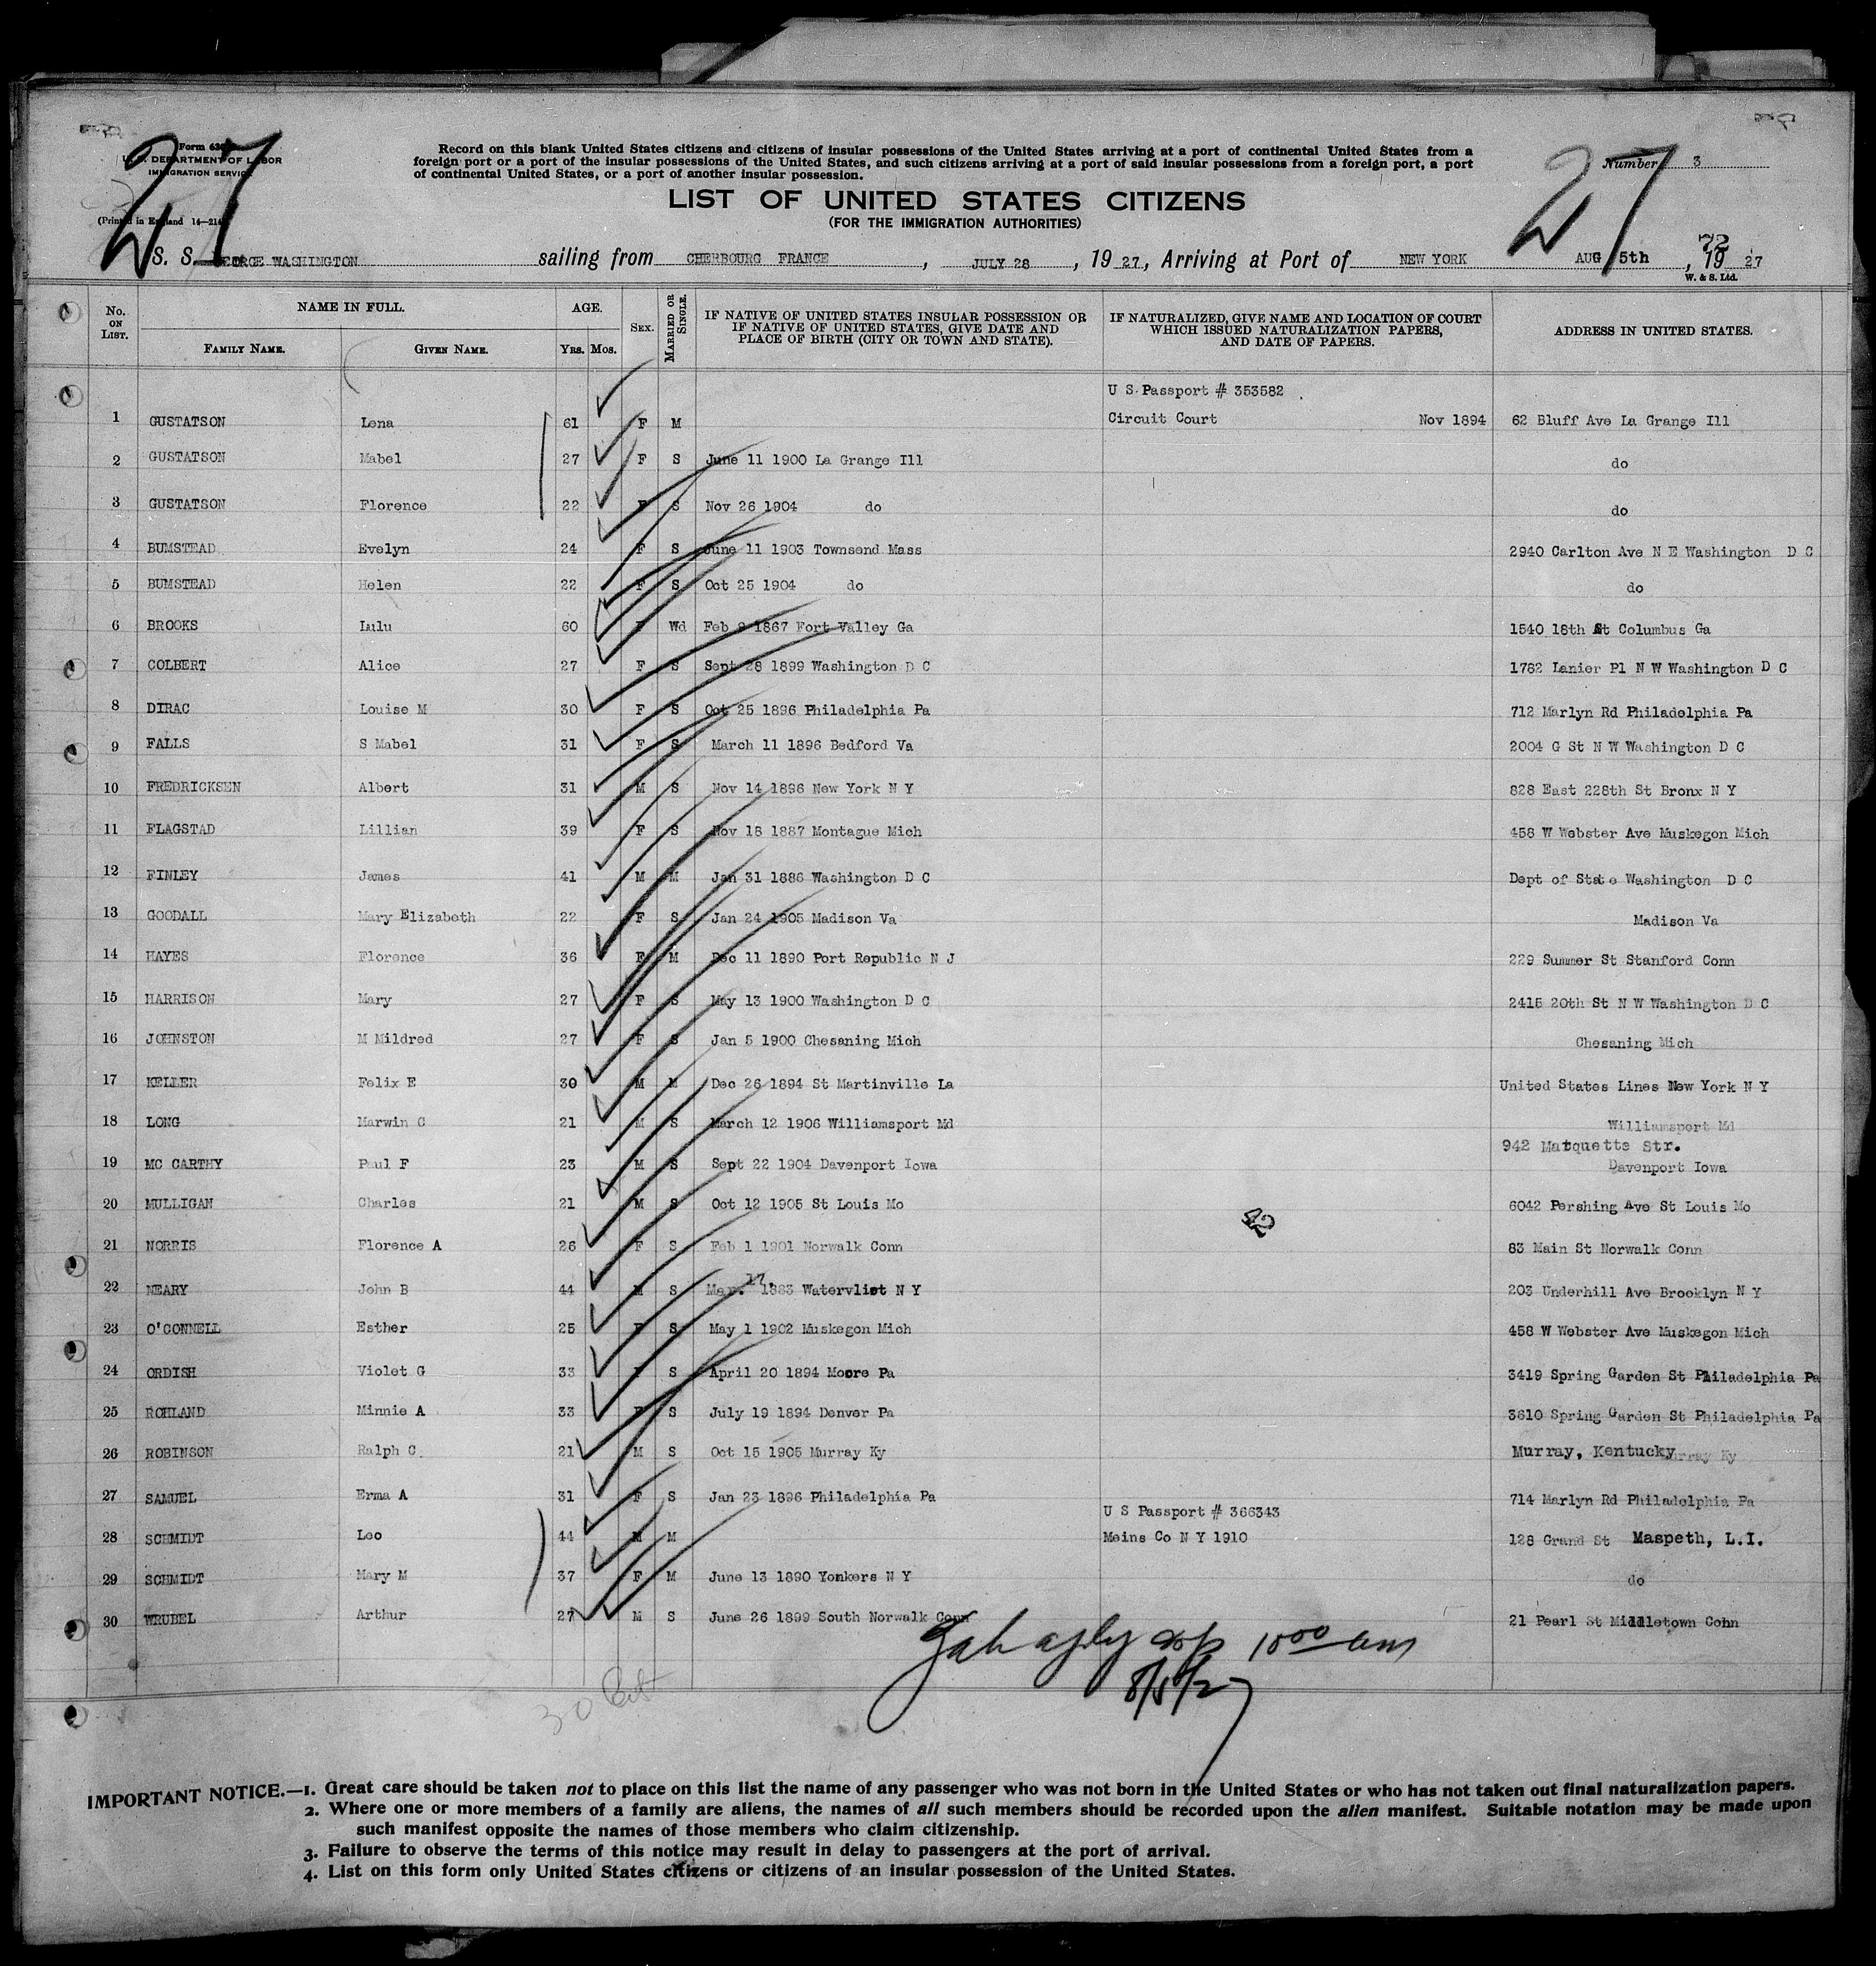 27
27
U. S. DEPARTMENT OF LABOR
IMMIGRATION SERVICE
(Printed in England 14—214
Record on this blank United States citizens and citizens of insular possessions of the United States arriving at a port of continental United States from a
foreign port or a port of the insular possessions of the United States, and such citizens arriving at a port of said insular possessions from a foreign port, a port
of continental United States, or a port of another insular possession.
Number 3
LIST OF UNITED STATES CITIZENS
(FOR THE IMMIGRATION AUTHORITIES)
72
S. S. GEORGE WASHINGTON sailing from CHERBOURG FRANCE , JULY 28 , 19 27, Arriving at Port of NEW YORK AUG 5th , 19 27
W. & S. Ltd.
No. ON LIST. NAME IN FULL. FAMILY NAME. GIVEN NAME. AGE. YRS. MOS. SEX. MARRIED OR SINGLE. IF NATIVE OF UNITED STATES INSULAR POSSESSION OR IF NATIVE OF UNITED STATES, GIVE DATE AND PLACE OF BIRTH (CITY OR TOWN AND STATE). IF NATURALIZED, GIVE NAME AND LOCATION OF COURT WHICH ISSUED NATURALIZATION PAPERS, AND DATE OF PAPERS. ADDRESS IN UNITED STATES.
U S Passport # 353582
1 GUSTATSON Lena 61 F M Circuit Court Nov 1894 62 Bluff Ave La Grange Ill
2 GUSTATSON Mabel 27 F S June 11 1900 La Grange Ill do
3 GUSTATSON Florence 22 F S Nov 26 1904 do do
4 BUMSTEAD Evelyn 24 F S June 11 1903 Townsend Mass 2940 Carlton Ave N E Washington D C
5 BUMSTEAD Helen 22 F S Oct 25 1904 do do
6 BROOKS Lulu 60 F Wd Feb 9 1867 Fort Valley Ga 1540 18th St Columbus Ga
7 COLBERT Alice 27 F S Sept 28 1899 Washington D C 1762 Lanier Pl N W Washington D C
8 DIRAC Louise M 30 F S Oct 25 1896 Philadelphia Pa 712 Marlyn Rd Philadelphia Pa
9 FALLS S Mabel 31 F S March 11 1896 Bedford Va 2004 G St N W Washington D C
10 FREDRICKSEN Albert 31 M S Nov 14 1896 New York N Y 828 East 228th St Bronx N Y
11 FLAGSTAD Lillian 39 F S Nov 18 1887 Montague Mich 458 W Webster Ave Muskegon Mich
12 FINLEY James 41 M M Jan 31 1886 Washington D C Dept of State Washington D C
13 GOODALL Mary Elizabeth 22 F S Jan 24 1905 Madison Va Madison Va
14 HAYES Florence 36 F M Dec 11 1890 Port Republic N J 229 Summer St Stanford Conn
15 HARRISON Mary 27 F S May 13 1900 Washington D C 2415 20th St N W Washington D C
16 JOHNSTON M Mildred 27 F S Jan 5 1900 Chesaning Mich Chesaning Mich
17 KELLER Felix E 30 M M Dec 26 1894 St Martinville La United States Lines New York N Y
18 LONG Marwin C 21 M S March 12 1906 Williamsport Md Williamsport Md
942 Marquette Str.
19 MC CARTHY Paul F 23 M S Sept 22 1904 Davenport Iowa Davenport Iowa
20 MULLIGAN Charles 21 M S Oct 12 1905 St Louis Mo 6042 Pershing Ave St Louis Mo
42
21 NORRIS Florence A 26 F S Feb 1 1901 Norwalk Conn 83 Main St Norwalk Conn
22 NEARY John B 44 M S Mar. 17. 1883 Watervliet N Y 203 Underhill Ave Brooklyn N Y
23 O'CONNELL Esther 25 F S May 1 1902 Muskegon Mich 458 W Webster Ave Muskegon Mich
24 ORDISH Violet G 33 F S April 20 1894 Moore Pa 3419 Spring Garden St Philadelphia Pa
25 ROHLAND Minnie A 33 F S July 19 1894 Denver Pa 3610 Spring Garden St Philadelphia Pa
26 ROBINSON Ralph C 21 M S Oct 15 1905 Murray Ky Murray, Kentucky
27 SAMUEL Erma A 31 F S Jan 23 1896 Philadelphia Pa 714 Marlyn Rd Philadelphia Pa
U S Passport # 366343
28 SCHMIDT Leo 44 M M Meins Co N Y 1910 128 Grand St Maspeth, L.I.
29 SCHMIDT Mary M 37 F M June 13 1890 Yonkers N Y do
30 WRUBEL Arthur 27 M S June 26 1899 South Norwalk Conn 21 Pearl St Middletown Conn
10 00 am
8/5/27
30
IMPORTANT NOTICE.—1. Great care should be taken not to place on this list the name of any passenger who was not born in the United States or who has not taken out final naturalization papers.
2. Where one or more members of a family are aliens, the names of all such members should be recorded upon the alien manifest. Suitable notation may be made upon
such manifest opposite the names of those members who claim citizenship.
3. Failure to observe the terms of this notice may result in delay to passengers at the port of arrival.
4. List on this form only United States citizens or citizens of an insular possession of the United States.